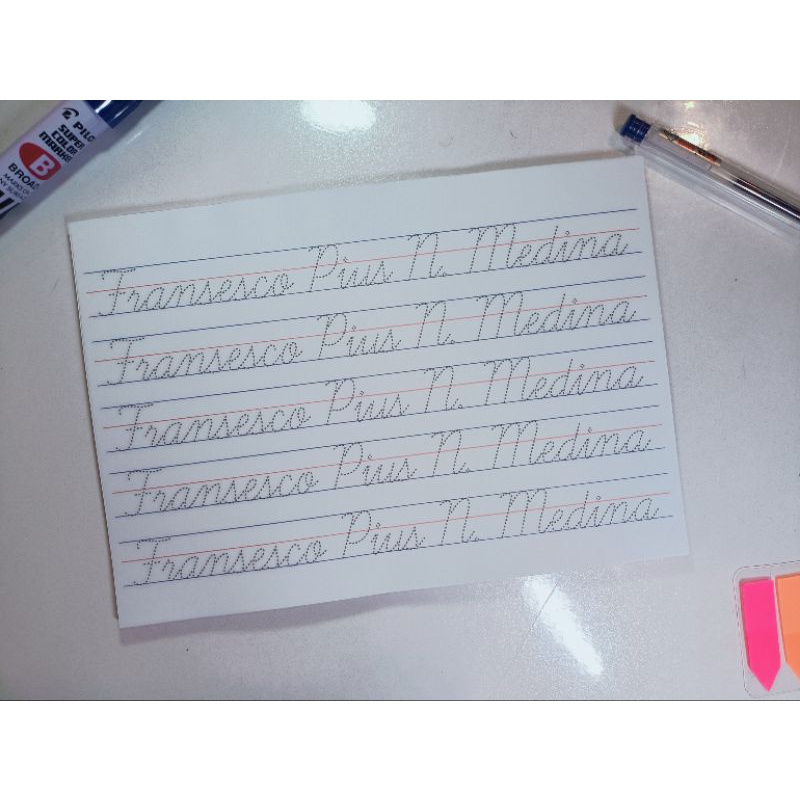 PILO
SUPER
COLOR
MARKE
B
BROA
Fransesco Pius N. Medina
Fransesco Pius N. Medina
Fransesco Pius N. Medina
Fransesco Pius N. Medina
Fransesco Pius N. Medina